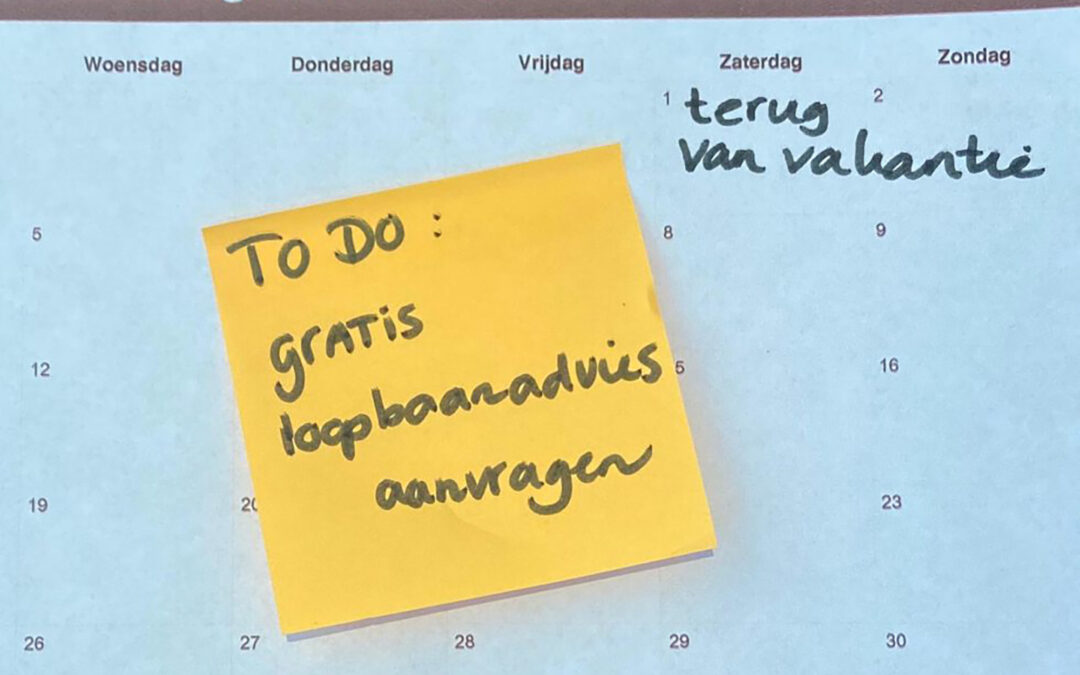 Woensdag Donderdag Vrijdag Zaterdag Zondag
1 terug 2
van vakantie
TO DO :
5 8 9
gratis
12 loopbaanadvies 5 16
aanvragen
19 20 23
26 27 28 29 30